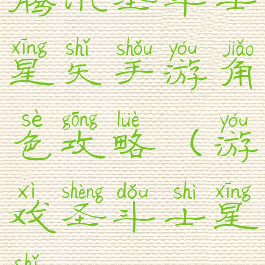 腾讯圣斗士
xīng shǐ shǒu yóu jiǎo
星矢手游角
sè gōng luè yóu
色攻略（游
xì shèng dǒu shì xīng
戏圣斗士星
shǐ